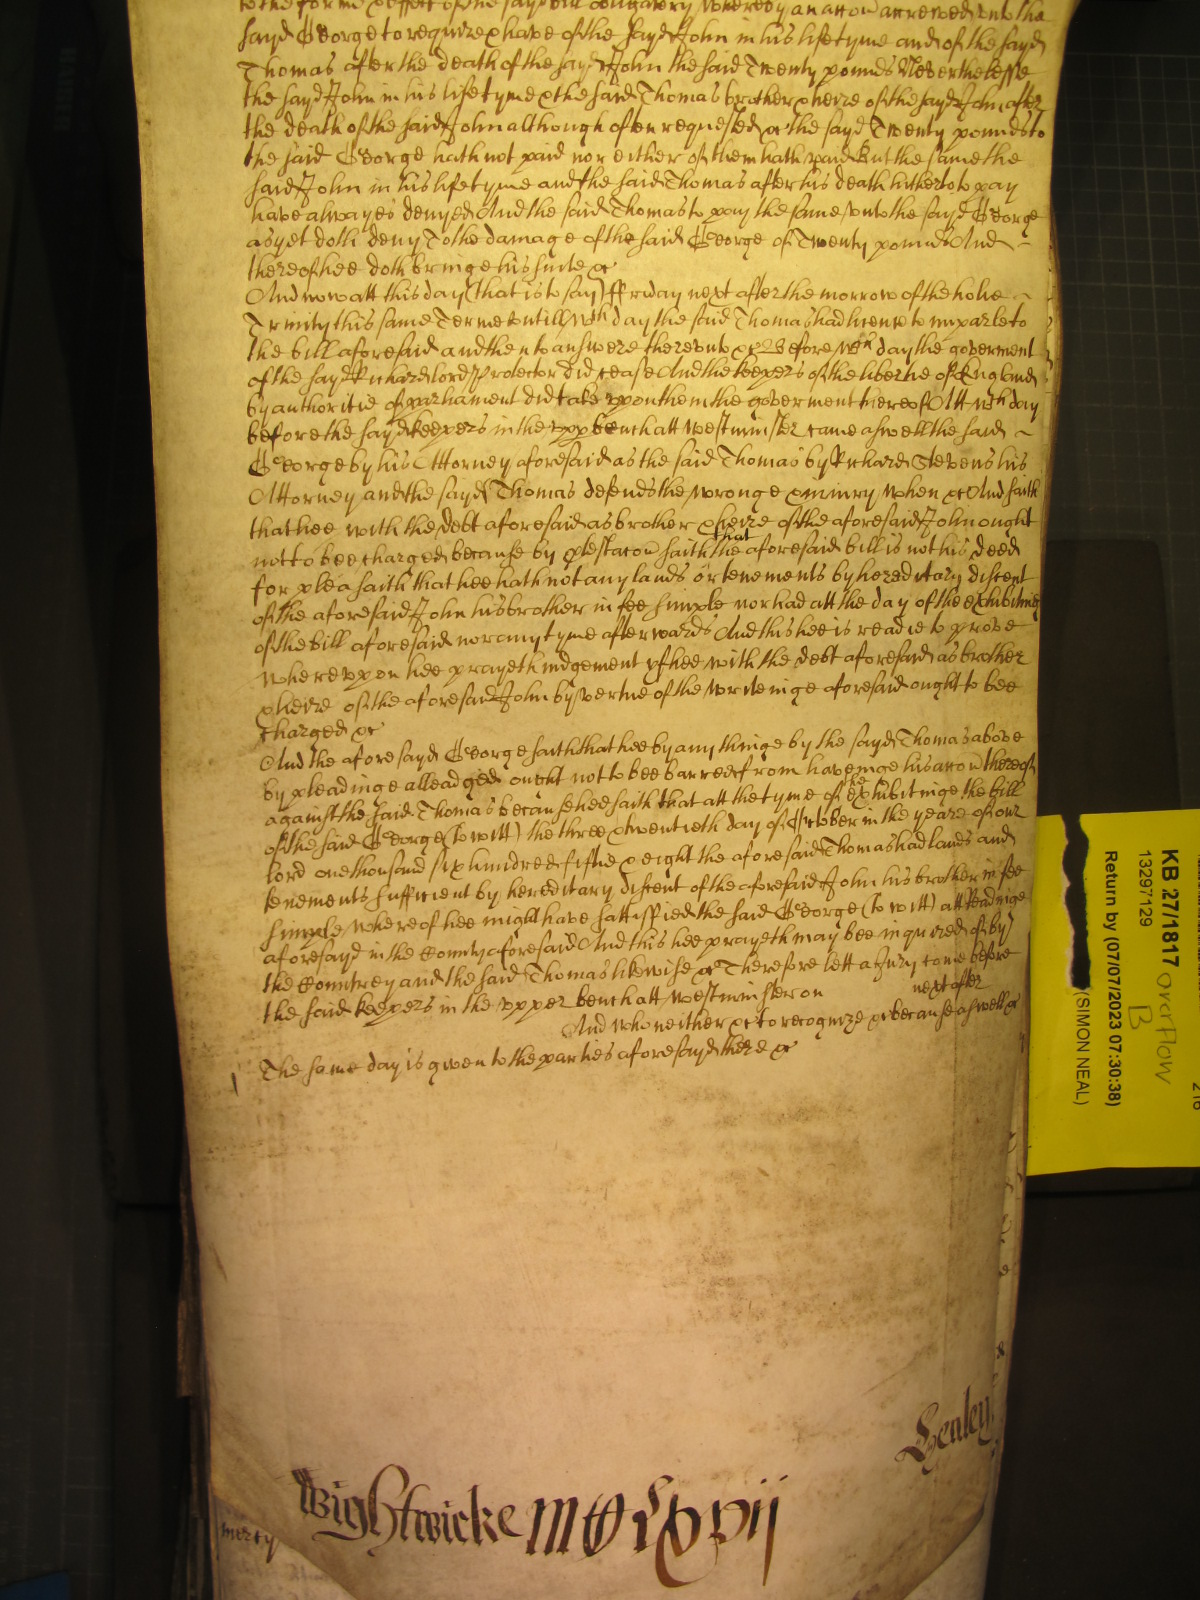 to the forme & effect of the sayd bill obligatory whereby an accon accrewed unto the
sayd George to require & have of the sayd John in his lifetyme and of the sayd
Thomas after the death of the sayd John the said Twenty pounds Neverthelesse
the sayd John in his lifetyme & the said Thomas brother & heire of the sayd John after
the death of the said John although often requested &c the sayd Twenty pounds to
the said George hath not paid nor either of them hath paid But the same the
said John in his lifetyme and the said Thomas after his death hitherto to pay
have alwayes denyed And the said Thomas to pay the same unto the sayd George
as yet doth deny To the damage of the said George of Twenty pounds And
thereof hee doth bringe his suite &c
And now att this day (that is to say) ffriday next after the morrow of the holie
Trinity this same Terme untill wch day the said Thomas had licence to imparle to
the bill aforesaid and then to answere thereunto &c Before wch day the goverment
of the sayd Richard lord Protector did cease And the keepers of the libertie of England
by authoritie of parliament did take upon them the goverment thereof Att wch day
before the sayd keepers in the upp bench att Westminster came aswell the said
George by his Attorney aforesaid as the said Thomas by Richard Stevens his
Attorney and the sayd Thomas defends the wronge & iniury when &c And saith
that hee with the debt aforesaid as brother & heire of the aforesaid John ought
not to bee charged because by ptestacon saith that the aforesaid bill is not his deed
for plea saith that hee hath not any lands or tenements by hereditary discent
of the aforesaid John his brother in fee simple nor had att the day of the exhibitinge
of the bill aforesaid nor any tyme afterwards And this hee is readie to prove
whereuppon hee prayeth iudgement yf hee with the debt aforesaid as brother
& heire of the aforesaid John by vertue of the writeinge aforesaid ought to bee
charged &c
And the aforesayd George saith that hee by any thinge by the sayd Thomas above
by pleadinge alleadged ought not to bee barred from haveinge his accon thereof
against the said Thomas because hee saith that att the tyme of the exhibitinge the bill
of the said George (To witt) the three & twentieth day of October in the yeare of our
lord one thousand six hundred fiftie & eight the aforesaid Thomas had lands and
tenements sufficient by hereditary discent of the aforesaid John his brother in fee
simple whereof hee might have sattisfied the said George (To witt) att Readinge
aforesayd in the County aforesaid And this hee prayeth may bee inquired of by
the Countrey and the said Thomas likewise &c Therefore lett a Jury come before
the said keepers in the upper bench att Westminster on next after
And who neither &c to recognize &c because aswell &c
The same day is given to the parties aforesayd there &c
Wightwicke
Sealey
KB 27/1817
13297129
overflow
B
Return by (07/07/2023 07:30:38)
(SIMON NEAL)